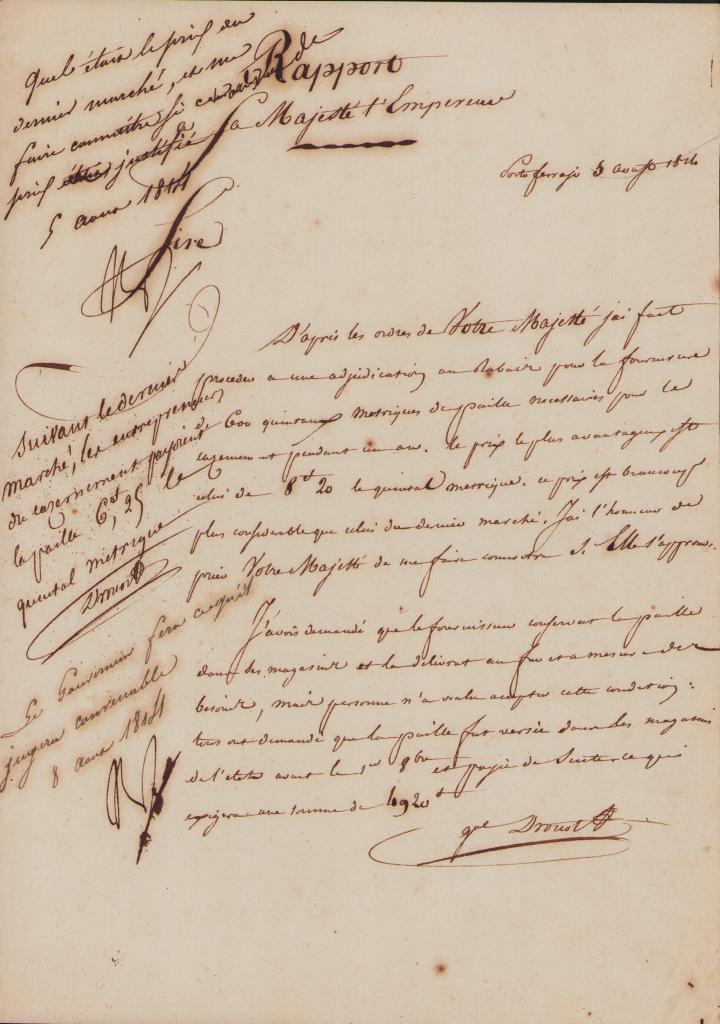 Rapport
a Sa Majesté l'Empereur
Porto ferrajo 5 aoust 1814
Quel était le prix du
dernier marché, et me
faire connaître si ce
prix est justifié
5 aout 1814
N
Sire
D'après les ordres de Votre Majesté j'ai fait
proceder a une adjudication au Rabais pour la fourniture
de 600 quintaux metriques de paille necessaires pour le
casernement pendant un an. le prix le plus avantageux est
celui de 8f 20 le quintal metrique. ce prix est beaucoup
plus considerable que celui du dernier marché. J'ai l'honneur de
prier Votre Majesté de me faire connoitre si Elle l'approuve.
J'avois demandé que le fournisseur conservat la paille
dans des magasins et la délivrat au fur et a mesure des
besoins, mais personne n'a voulu accepter cette condition:
tous ont demandé que la paille fut versée dans les magasins
de l'etat avant le 1er 8bre et payée de suite ce qui
exigera une somme de 4920f
gal Drouot
Suivant le dernier
marché, les entrepreneurs
du casernement payoient
la paille 6f, 25 le
quintal metrique
Drouot
Le Gouverneur fera ce qu'il
jugera convenable
8 aout 1814
N